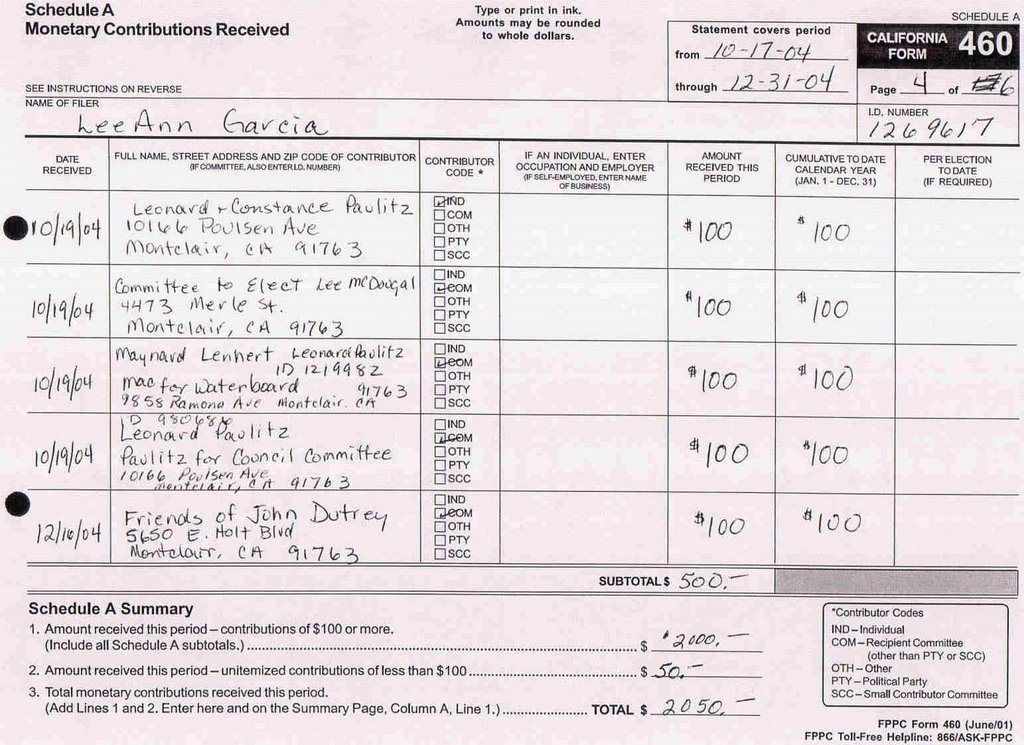 Schedule A
Monetary Contributions Received
Type or print in ink.
Amounts may be rounded
to whole dollars.
SCHEDULE A
Statement covers period
from 10-17-04
through 12-31-04
CALIFORNIA
FORM 460
Page 4 of 6
SEE INSTRUCTIONS ON REVERSE
NAME OF FILER
LeeAnn Garcia
I.D. NUMBER
1269617
DATE
RECEIVED
FULL NAME, STREET ADDRESS AND ZIP CODE OF CONTRIBUTOR
(IF COMMITTEE, ALSO ENTER I.D. NUMBER)
CONTRIBUTOR
CODE *
IF AN INDIVIDUAL, ENTER
OCCUPATION AND EMPLOYER
(IF SELF-EMPLOYED, ENTER NAME
OF BUSINESS)
AMOUNT
RECEIVED THIS
PERIOD
CUMULATIVE TO DATE
CALENDAR YEAR
(JAN. 1 - DEC. 31)
PER ELECTION
TO DATE
(IF REQUIRED)
10/19/04
Leonard + Constance Paulitz
10166 Poulsen Ave
Montclair, CA 91763
IND
COM
OTH
PTY
SCC
$100
$100
10/19/04
Committee to Elect Lee McDougal
4473 Merle St.
Montclair, CA 91763
IND
COM
OTH
PTY
SCC
$100
$100
10/19/04
Maynard Lenhert Leonard Paulitz
ID 1219982
Mac for Waterboard 91763
9858 Ramona Ave Montclair. CA
IND
COM
OTH
PTY
SCC
$100
$100
10/19/04
ID 980686
Leonard Paulitz
Paulitz for Council Committee
10166 Poulsen Ave
Montclair, CA 91763
IND
COM
OTH
PTY
SCC
$100
$100
12/16/04
Friends of John Dutrey
5650 E. Holt Blvd
Montclair, CA 91763
IND
COM
OTH
PTY
SCC
$100
$100
SUBTOTAL $ 500.-
Schedule A Summary
1. Amount received this period – contributions of $100 or more.
(Include all Schedule A subtotals.) $ $2000.-
2. Amount received this period – unitemized contributions of less than $100 $ 50.-
3. Total monetary contributions received this period.
(Add Lines 1 and 2. Enter here and on the Summary Page, Column A, Line 1.) TOTAL $ 2050.-
*Contributor Codes
IND – Individual
COM – Recipient Committee
(other than PTY or SCC)
OTH – Other
PTY – Political Party
SCC – Small Contributor Committee
FPPC Form 460 (June/01)
FPPC Toll-Free Helpline: 866/ASK-FPPC